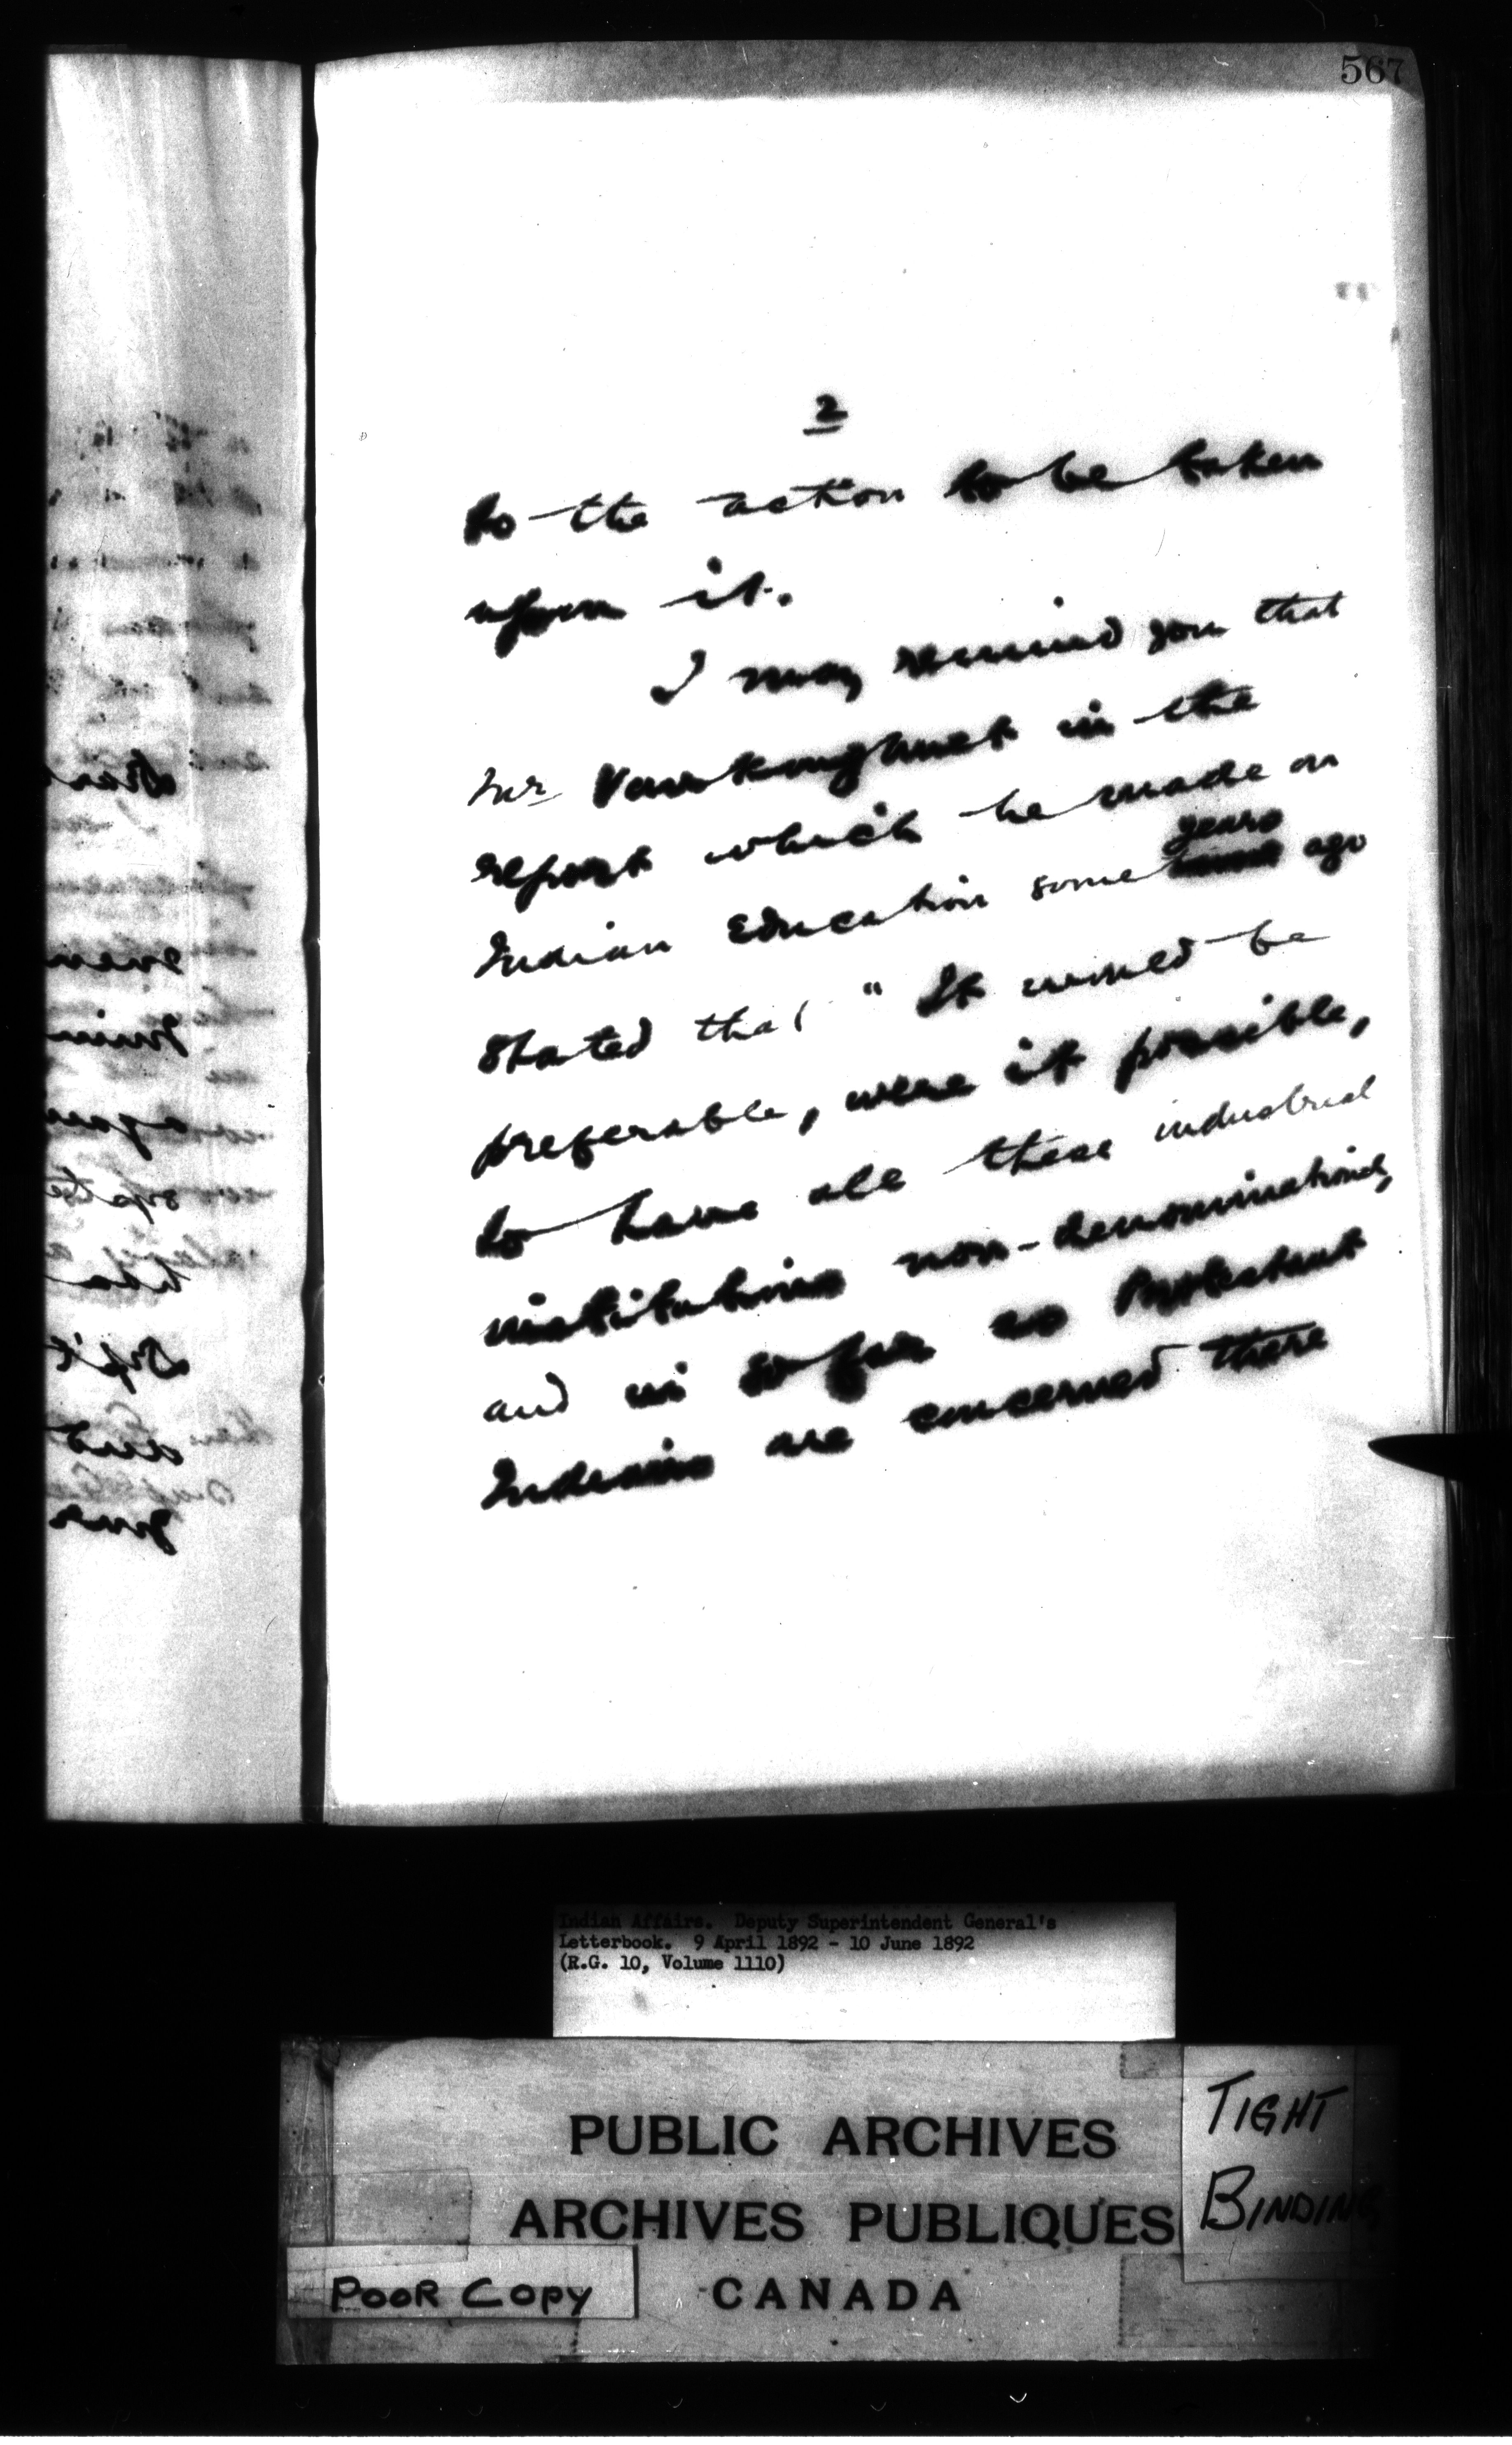 567
2
to the action to be taken
upon it.
I may remind you that
Mr Vankoughnet in the
report which he made on
years
Indian Education some ago
stated that "It would be
preferable, were it possible,
to have all these industrial
institutions non-denominational,
and in so far as Protestant
Indians are concerned there
Indian Affairs. Deputy Superintendent General's
Letterbook. 9 April 1892 - 10 June 1892
(R.G. 10, Volume 1110)
PUBLIC ARCHIVES
ARCHIVES PUBLIQUES
CANADA
TIGHT
BINDING
POOR COPY